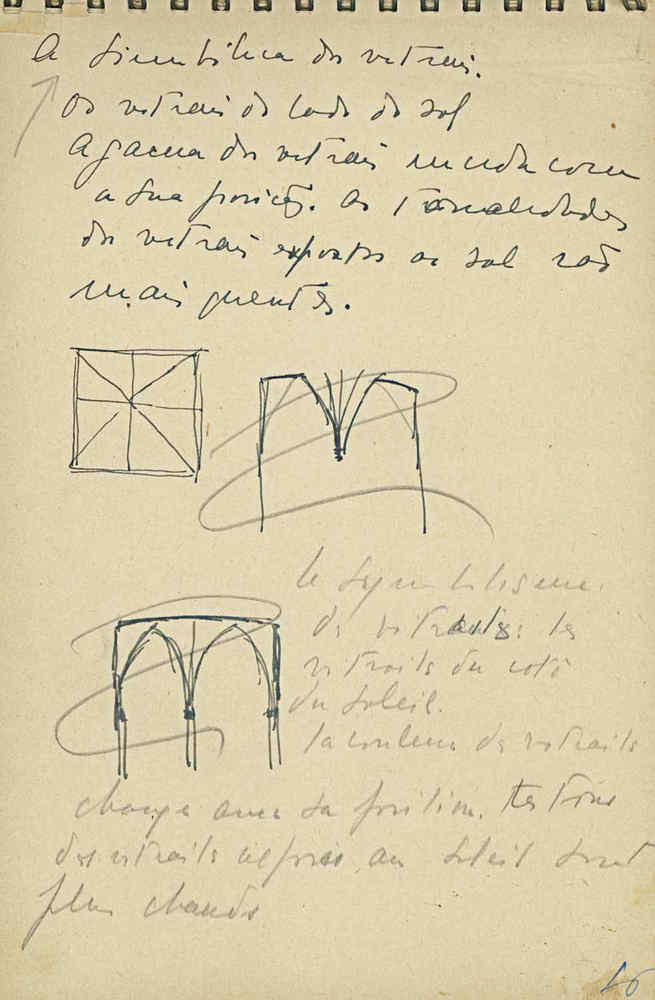 A simbólica dos vitrais.
Os vitrais do lado do sol
A gama dos vitrais muda com
a sua posição. As tonalidades
dos vitrais expostos ao sol são
mais quentes.
Le symbolisme
des vitrails: les
vitrails du coté
du soleil.
la couleur des vitrails
change avec sa position. Les tons
des vitrails exposés au soleil sont
plus chauds